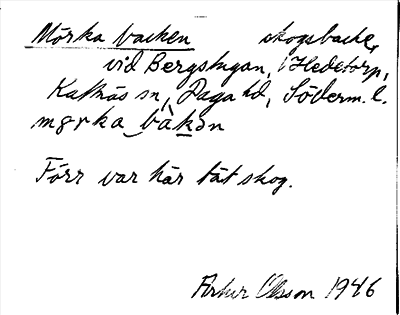 Mörka backen skogsbacke,
vid Bergstugan, i Hedetorp,
Kattnäs sn, Daga hd, Söderm. l.
mørka bàkən
Förr var här tät skog.
Artur Olsson 1946